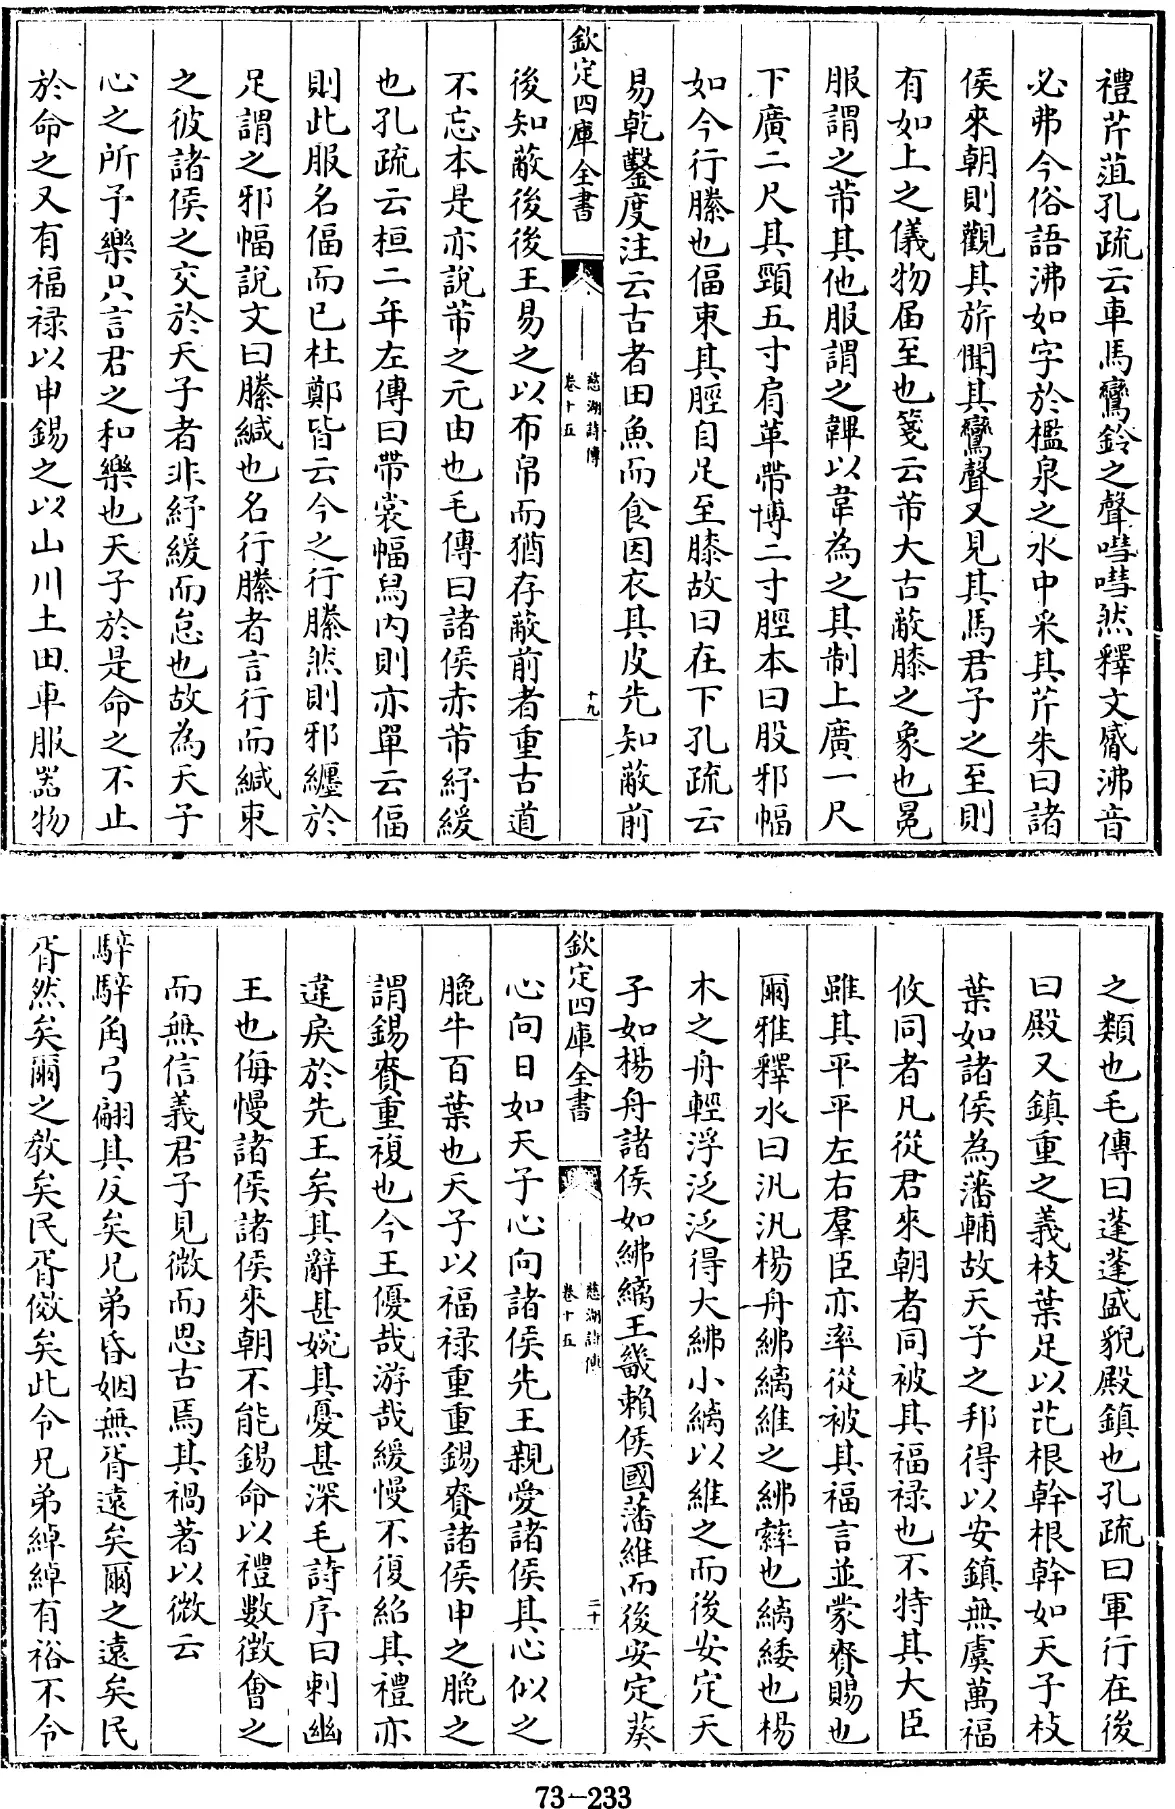 禮芹菹孔疏云車馬鸞鈴之聲嘒嘒然釋文觱沸音
必弗今俗語沸如字於檻泉之水中采其芹朱曰諸
侯來朝則觀其旂聞其鸞聲又見其馬君子之至則
有如上之儀物届至也箋云芾大古蔽膝之象也冕
服謂之芾其他服謂之韠以韋為之其制上廣一尺
下廣二尺其頸五寸肩革帶博二寸脛本曰股邪幅
如今行縢也偪束其脛自足至膝故曰在下孔疏云
易乾鑿度注云古者田魚而食因衣其皮先知蔽前
欽定四庫全書
慈湖詩傳
卷十五
十九
後知蔽後後王易之以布帛而猶存蔽前者重古道
不忘本是亦說芾之元由也毛傳曰諸侯赤芾紓緩
也孔疏云桓二年左傳曰帶裳幅舄内則亦單云偪
則此服名偪而已杜鄭皆云今之行縢然則邪纏於
足謂之邪幅說文曰縢緘也名行縢者言行而緘束
之彼諸侯之交於天子者非紓緩而怠也故為天子
心之所予樂只言君之和樂也天子於是命之不止
於命之又有福禄以申錫之以山川土田車服器物
之類也毛傳曰蓬蓬盛貌殿鎮也孔疏曰軍行在後
曰殿又鎮重之義枝葉足以芘根幹根幹如天子枝
葉如諸侯為藩輔故天子之邦得以安鎮無虞萬福
攸同者凡從君來朝者同被其福禄也不特其大臣
雖其平平左右羣臣亦率從被其福言並蒙賚賜也
爾雅釋水曰汎汎楊舟紼縭維之紼䋎也縭緌也楊
木之舟輕浮泛泛得大紼小縭以維之而後安定天
子如楊舟諸侯如紼縭王畿賴侯國藩維而後安定葵
欽定四庫全書
慈湖詩傳
卷十五
二十
心向日如天子心向諸侯先王親愛諸侯其心似之
膍牛百葉也天子以福禄重重錫賚諸侯申之膍之
謂錫賚重複也今王優哉游哉緩慢不復紹其禮亦
違戾於先王矣其辭甚婉其憂甚深毛詩序曰刺幽
王也侮慢諸侯諸侯來朝不能錫命以禮數徵會之
而無信義君子見微而思古焉其禍著以微云
騂騂角弓翩其反矣兄弟昏姻無胥遠矣爾之遠矣民
胥然矣爾之教矣民胥傚矣此令兄弟綽綽有裕不令
73-233